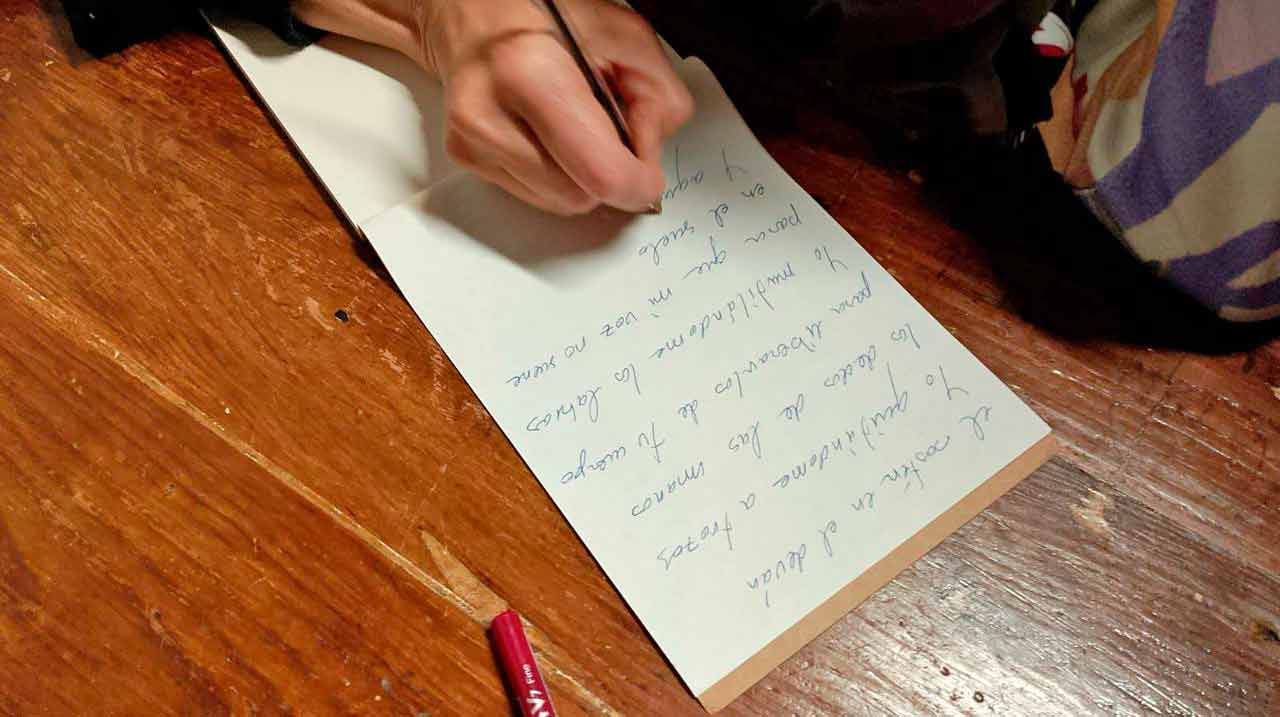 el sostén en el deván
Yo quitándome a trozos
los dedos de las manos
para liberarlos de tu cuerpo
Yo mutilándome los labios
para que mi voz no suene
en el suelo
Y
V7 Fine